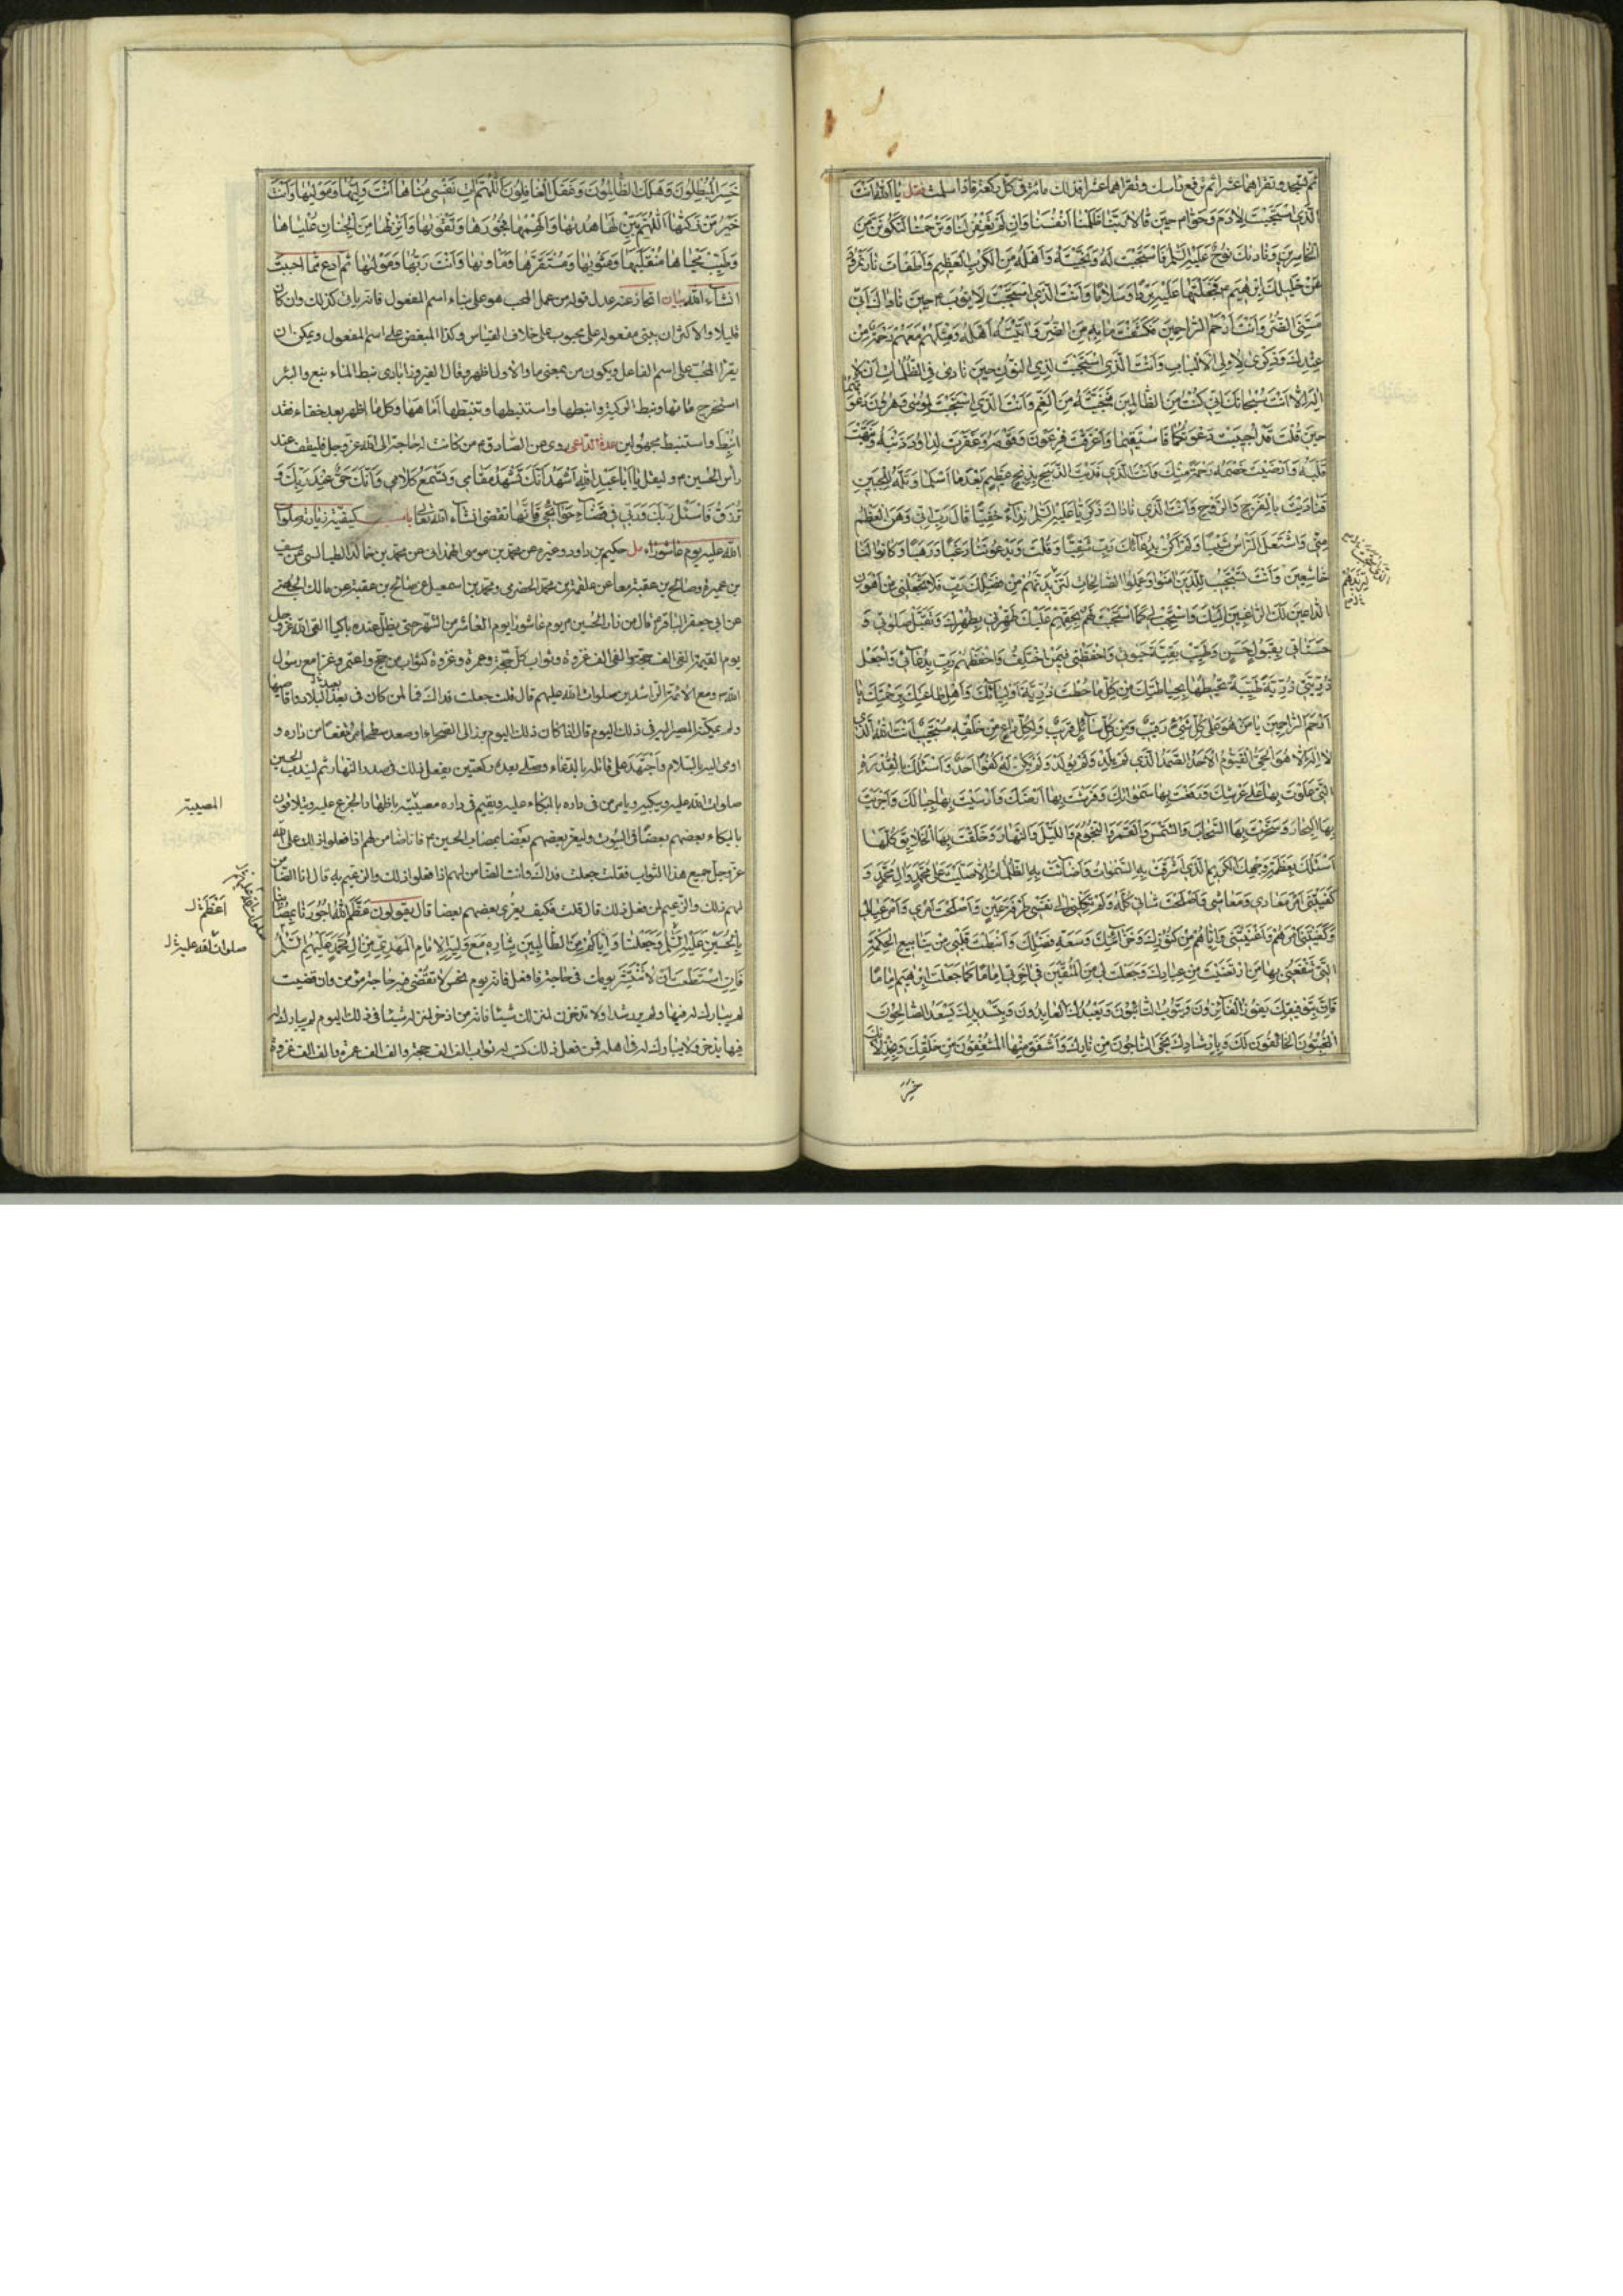 ثم تسجد وتقراهما عشرا ثم ترفع راسك وتقراهما عشرا فذلك مائة في كل ركعة فاذا سلمت فقل يا الله انت
الَّذي اسْتَجَبْتَ لِادَمَ وَحَوّا م حينَ قالا رَبَّنا ظَلَمْنا اَنْفُسَنا وَاِنْ لَمْ تَغْفِرْ لَنا وَتَرْحَمْنا لَنَكُونَنَّ مِنَ
الْخاسِرينَ وَناداكَ نُوحٌ عَلَيْهِ السَّلَمُ فَاسْتَجَبْتَ لَهُ وَنَجَّيْتَهُ وَاَهْلَهُ مِنَ الْكَرْبِ الْعَظيمِ وَاَطْفَاْتَ نارَ نُمْرُودَ
عَنْ خَليلِكَ اِبْرهيمَ م فَجَعَلْتَها عَلَيْهِ بَرْدًا وَسَلامًا وَاَنْتَ الَّذي اسْتَجَبْتَ لِاَيُّوبَ م حينَ ناداكَ اَنّي
مَسَّنِيَ الضُّرُّ وَاَنْتَ اَرْحَمُ الرّاحِمينَ فَكَشَفْتَ ما بِهِ مِنَ الضُّرِّ وَاتَيْتَهُ اَهْلَهُ وَمِثْلَهُمْ مَعَهُمْ رَحْمَةً مِنْ
عِنْدِكَ وَذِكْرى لِاُولِي الْاَلْبابِ وَاَنْتَ الَّذي اسْتَجَبْتَ لِذِي النُّونِ حينَ نادى فِي الظُّلُماتِ اَنْ لا
اِلهَ اِلّا اَنْتَ سُبْحانَكَ اِنّي كُنْتُ مِنَ الظّالِمينَ فَنَجَّيْتَهُ مِنَ الْغَمِّ وَاَنْتَ الَّذي اسْتَجَبْتَ لِمُوسى وَهرُونَ دَعْوَتَهُما
حينَ قُلْتَ قَدْ اُجيبَتْ دَعْوَتُكُما فَاسْتَقيما وَاَغْرَقْتَ فِرْعَوْنَ وَقَوْمَهُ وَغَفَرْتَ لِداوُدَ ذَنْبَهُ وَنَبَّهْتَ
قَلْبَهُ وَاَرْضَيْتَ خَصْمَهُ رَحْمَةً مِنْكَ وَاَنْتَ الَّذي فَدَيْتَ الذَّبيحَ بِذِبْحٍ عَظيمٍ بَعْدَما اَسْلَما وَتَلَّهُ لِلْجَبينِ
فَنادَيْتَ بِالْفَرَجِ وَالرَّوْحِ وَاَنْتَ الَّذي ناداكَ زَكَرِيّا عَلَيْهِ السَّلَمُ نِداءً خَفِيًّا قالَ رَبِّ اِنّي وَهَنَ الْعَظْمُ
مِنّي وَاشْتَعَلَ الرَّاْسُ شَيْبًا وَلَمْ اَكُنْ بِدُعائِكَ رَبِّ شَقِيًّا وَقُلْتَ وَيَدْعُونَنا رَغَبًا وَرَهَبًا وَكانُوا لَنا
خاشِعينَ وَاَنْتَ تَسْتَجيبُ لِلَّذينَ امَنُوا وَعَمِلُوا الصّالِحاتِ لِتَزيدَهُمْ مِنْ فَضْلِكَ رَبِّ فَلا تَجْعَلْني مِنْ اَهْوَنِ
الدّاعينَ لَكَ الرّاغِبينَ اِلَيْكَ وَاسْتَجِبْ لي كَمَا اسْتَجَبْتَ لَهُمْ بِحَقِّهِمْ عَلَيْكَ طَهِّرْني بِطُهْرِكَ وَتَقَبَّلْ صَلوتي وَ
حَسَناتي بِقَبُولٍ حَسَنٍ وَطَيِّبْ بَقِيَّةَ حَيوتي وَاحْفَظْني فيمَنْ اَخْلُفُ وَاحْفَظْهُمْ رَبِّ بِدُعائي وَاجْعَلْ
ذُرِّيَّتي ذُرِّيَّةً طَيِّبَةً تُحيطُها بِحِياطَتِكَ مِنْ كُلِّ ما حُطْتَ ذُرِّيَّةَ اَوْلِيائِكَ وَاَهْلِ طاعَتِكَ بِرَحْمَتِكَ يا
اَرْحَمَ الرّاحِمينَ يا مَنْ هُوَ عَلى كُلِّ شَيْءٍ رَقيبٌ وَمِنْ كُلِّ سائِلٍ قَريبٌ وَلِكُلِّ داعٍ مِنْ خَلْقِهِ مُسْتَجيبٌ اَنْتَ اللهُ الَّذي
لا اِلهَ اِلّا هُوَ الْحَيُّ الْقَيُّومُ الْاَحَدُ الصَّمَدُ الَّذي لَمْ يَلِدْ وَلَمْ يُولَدْ وَلَمْ يَكُنْ لَهُ كُفُوًا اَحَدٌ وَاَسْئَلُكَ بِالْقُدْرَةِ
الَّتي عَلَوْتَ بِها عَلى عَرْشِكَ وَرَفَعْتَ بِها سَمواتِكَ وَفَرَشْتَ بِها اَرْضَكَ وَاَرْسَيْتَ بِها جِبالَكَ وَاَجْرَيْتَ
بِهَا الْبِحارَ وَسَخَّرْتَ بِهَا السَّحابَ وَالشَّمْسَ وَالْقَمَرَ وَالنُّجُومَ وَاللَّيْلَ وَالنَّهارَ وَخَلَقْتَ بِهَا الْخَلايِقَ كُلَّها
اَسْئَلُكَ بِعَظَمَةِ وَجْهِكَ الْكَريمِ الَّذي اَشْرَقَتْ بِهِ السَّمواتُ وَاَضائَتْ بِهِ الظُّلُماتُ اِلّا صَلَّيْتَ عَلى مُحَمَّدٍ وَالِ مُحَمَّدٍ وَ
كَفَيْتَني اَمْرَ مَعادي وَمَعاشي وَاَصْلَحْتَ شَاْني كُلَّهُ وَلَمْ تَكِلْني اِلى نَفْسي طَرْفَةَ عَيْنٍ وَاَصْلَحْتَ اَمْري وَاَمْرَ عِيالي
وَكَفَيْتَني اَمْرَهُمْ وَاَغْنَيْتَني وَاِيّاهُمْ مِنْ كُنُوزِكَ وَخَزائِنِكَ وَسَعَةِ فَضْلِكَ وَاَنْبَطْتَ قَلْبي مِنْ يَنابيعِ الْحِكْمَةِ
الَّتي تَنْفَعُني بِها مَنِ ارْتَضَيْتَ مِنْ عِبادِكَ وَجَعَلْتَ لي مِنَ الْمُتَّقينَ في اخِرَتي اِمامًا كَما جَعَلْتَ اِبْرهيمَ اِمامًا
فَاِنَّ بِتَوْفيقِكَ يَفُوزُ الْفائِزُونَ وَيَتُوبُ التّائِبُونَ وَيَعْبُدُكَ الْعابِدُونَ وَبِتَسْديدِكَ يَسْعَدُ الصّالِحُونَ
الْمُخْبِتُونَ الْخائِفُونَ لَكَ وَبِاِرْشادِكَ نَجَى النّاجُونَ مِنْ نارِكَ وَاَشْفَقَ مِنْهَا الْمُشْفِقُونَ مِنْ خَلْقِكَ وَبِخِذْلانِكَ
خَسِرَ
خَسِرَ الْمُبْطِلُونَ وَهَلَكَ الظّالِمُونَ وَغَفَلَ الْغافِلُونَ اَللّهُمَّ اتِ نَفْسي مُناها اَنْتَ وَلِيُّها وَمَوْليها وَاَنْتَ
خَيْرُ مَنْ زَكّاها اَللّهُمَّ بَيِّنْ لَها هُديها وَاَلْهِمْها فُجُورَها وَتَقْويها وَاَنْزِلْها مِنَ الْجِنانِ عُلْياها
وَطَيِّبْ مَحْياها مُنْقَلَبَها وَمَثْويها وَمُسْتَقَرَّها وَمَاْويها وَاَنْتَ رَبُّها وَمَوْليها ثم ادع بما احببت
انشاء الله بيان قوله من عمل المحب هو على بناء اسم المفعول فانه ياتي كذلك وان كان
قليلا والاكثر ان يبنى مفعوله على محبوب على خلاف القياس وكذا المبغض على اسم المفعول ويمكن ان
يقرأ المحب على اسم الفاعل ويكون من بمعنى ما والاول اظهر وقال الفيروزابادى نبط الماء نبع والبئر
استخرج ماءها ونبط الركية وانبطها واستنبطها وتنبطها اماهها وكل ما اظهر بعد خفاء فقد
انبط واستنبط مجهولين عدة الداعى روى عن الصادق م من كانت له حاجة الى الله عز وجل فليقف عند
رأس الحسين م وليقل يا اَبا عَبْدِ اللهِ اَشْهَدُ اَنَّكَ تَشْهَدُ مَقامي وَتَسْمَعُ كَلامي وَاَنَّكَ حَيٌّ عِنْدَ رَبِّكَ
تُرْزَقُ فَاسْئَلْ رَبَّكَ وَرَبّي في قَضاءِ حَوائِجي فَاِنَّها تقضى انشاء الله تعالى باب كيفية زيارته صلوات
الله عليه يوم عاشوراء مل حكيم بن داود وغيره عن محمد بن موسى الهمداني عن محمد بن خالد الطيالسي عن سيف
بن عميرة وصالح بن عقبة معا عن علقمة بن محمد الحضرمي ومحمد بن اسمعيل عن صالح بن عقبة عن مالك الجهني
عن ابي جعفر الباقر م قال من زار الحسين م يوم عاشورا يوم العاشر من الشهر حتى يظل عنده باكيا لقى الله عز وجل
يوم القيمة بالفي الف حجة والفي الف غزوة وثواب كل حجة وعمرة وغزوة كثواب من حج واعتمر وغزا مع رسول
الله ص ومع الائمة الراشدين صلوات الله عليهم قال قلت جعلت فداك فما لمن كان في بعد البلاد واقاصيها
ولم يمكنه المصير اليه في ذلك اليوم قال اذا كان ذلك اليوم برز الى الصحراء او صعد سطحا مرتفعا من داره و
اومى اليه بالسلام واجتهد على قاتله بالدعاء وصلى بعده ركعتين يفعل ذلك في صدر النهار ثم ليندب الحسين
صلوات الله عليه ويبكيه ويامر من في داره بالبكاء عليه ويقيم في داره مصيبته باظهار الجزع عليه ويتلاقون
بالبكاء بعضهم بعضا في البيوت وليعز بعضهم بعضا بمصاب الحسين م فانا ضامن لهم اذا فعلوا ذلك على الله
عز وجل جميع هذا الثواب فقلت جعلت فداك وانت الضامن لهم اذا فعلوا ذلك والزعيم به قال انا الضامن
لهم ذلك والزعيم لمن فعل ذلك قال قلت فكيف يعزي بعضهم بعضا قال يقولون عَظَّمَ اللهُ اُجُورَنا بِمُصابِنا
بِالْحُسَيْنِ عَلَيْهِ السَّلَمُ وَجَعَلَنا وَاِيّاكُمْ مِنَ الطّالِبينَ بِثارِهِ مَعَ وَلِيِّهِ الْاِمامِ الْمَهْدِيِّ مِنْ الِ مُحَمَّدٍ عَلَيْهِمُ السَّلَمُ
فان استطعت ان لا تنتشر يومك في حاجة فافعل فانه يوم نحس لا تقضى فيه حاجة مؤمن وان قضيت
لم يبارك له فيها ولم ير رشدا ولا تدخرن لمنزلك شيئا فانه من ادخر لمنزله شيئا في ذلك اليوم لم يبارك له
فيما يدخر ولا يبارك له في اهله فمن فعل ذلك كتب له ثواب الف الف حجة والف الف عمرة والف الف غزوة
المصيبة
اَعْظَمَ ل
صلوات الله عليه ل